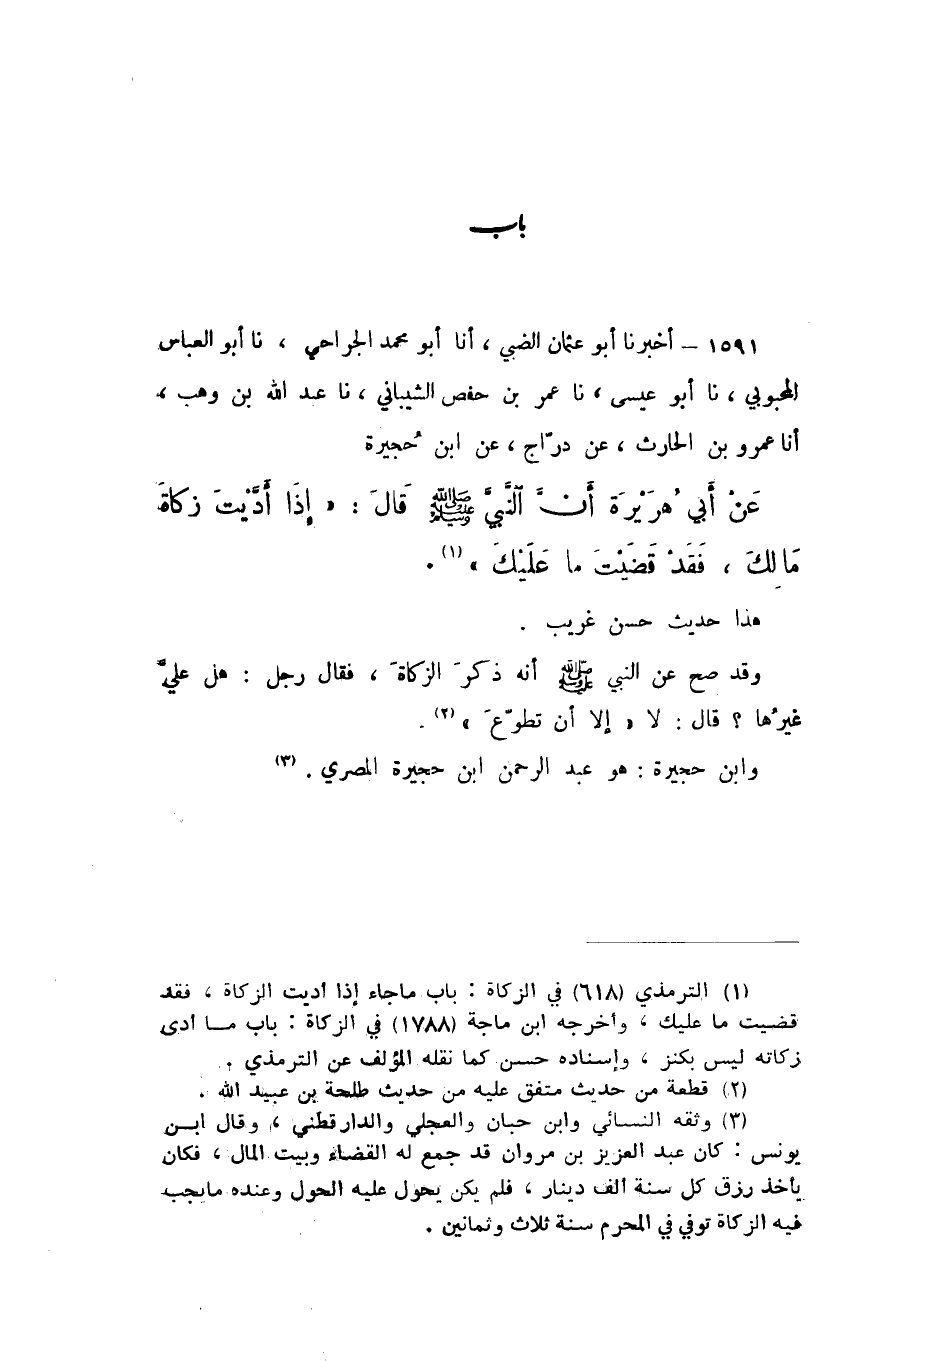 باب
١٥٩١ – أخبرنا أبو عثمان الضبي ، أنا أبو محمد الجراحي ، نا أبو العباس
المحبوبي ، نا أبو عيسى ، نا عمر بن حفص الشيباني ، نا عبد الله بن وهب ،
أنا عمرو بن الحارث ، عن درّاج ، عن ابن حُجيرة
عَنْ أَبي هُرَيْرَة أَنَّ النَّبيَّ ﷺ قَالَ : « إِذَا أَدَّيْتَ زكاةَ
مَالِكَ ، فَقَدْ قَضَيْتَ ما عَلَيْكَ » (١) .
هذا حديث حسن غريب .
وقد صح عن النبي ﷺ أنه ذكرَ الزكاةَ ، فقال رجل : هل عليَّ
غيرُها ؟ قال : لا « إلا أن تطوّعَ » (٢) .
وابن حجيرة : هو عبد الرحمن ابن حجيرة المصري . (٣)
(١) الترمذي (٦١٨) في الزكاة : باب ماجاء إذا أديت الزكاة ، فقد
قضيت ما عليك ، وأخرجه ابن ماجة (١٧٨٨) في الزكاة : باب مـا أدى
زكاته ليس بكنز ، وإسناده حسن كما نقله المؤلف عن الترمذي .
(٢) قطعة من حديث متفق عليه من حديث طلحة بن عبيد الله .
(٣) وثقه النسائي وابن حبان والعجلي والدارقطني ، وقال ابـن
يونس : كان عبد العزيز بن مروان قد جمع له القضاء وبيت المال ، فكان
يأخذ رزق كل سنة ألف دينار ، فلم يكن يحول عليه الحول وعنده مايجب
فيه الزكاة توفي في المحرم سنة ثلاث وثمانين .